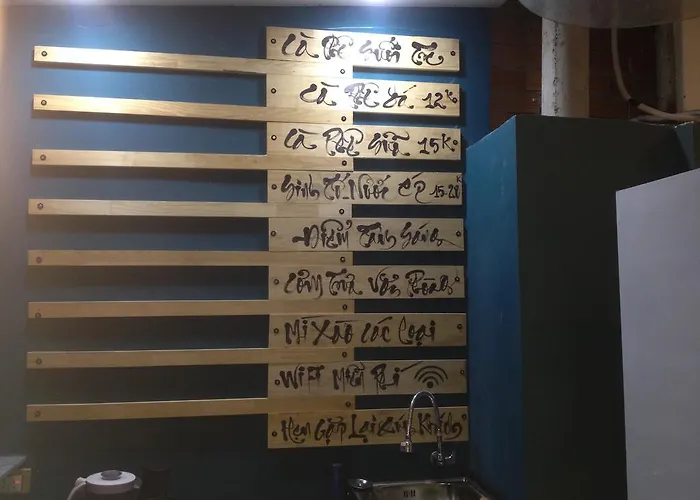 Cà Phê Sữa Tc
Cà Phê Đá 12K
Cà Phê Sữa 15K
Sinh Tố Nước Ép 15-20K
Điểm Tâm Sáng
Cơm Trưa Văn Phòng
Mì Xào Các Loại
WiFi Miễn Phí
Hẹn Gặp Lại Quý Khách